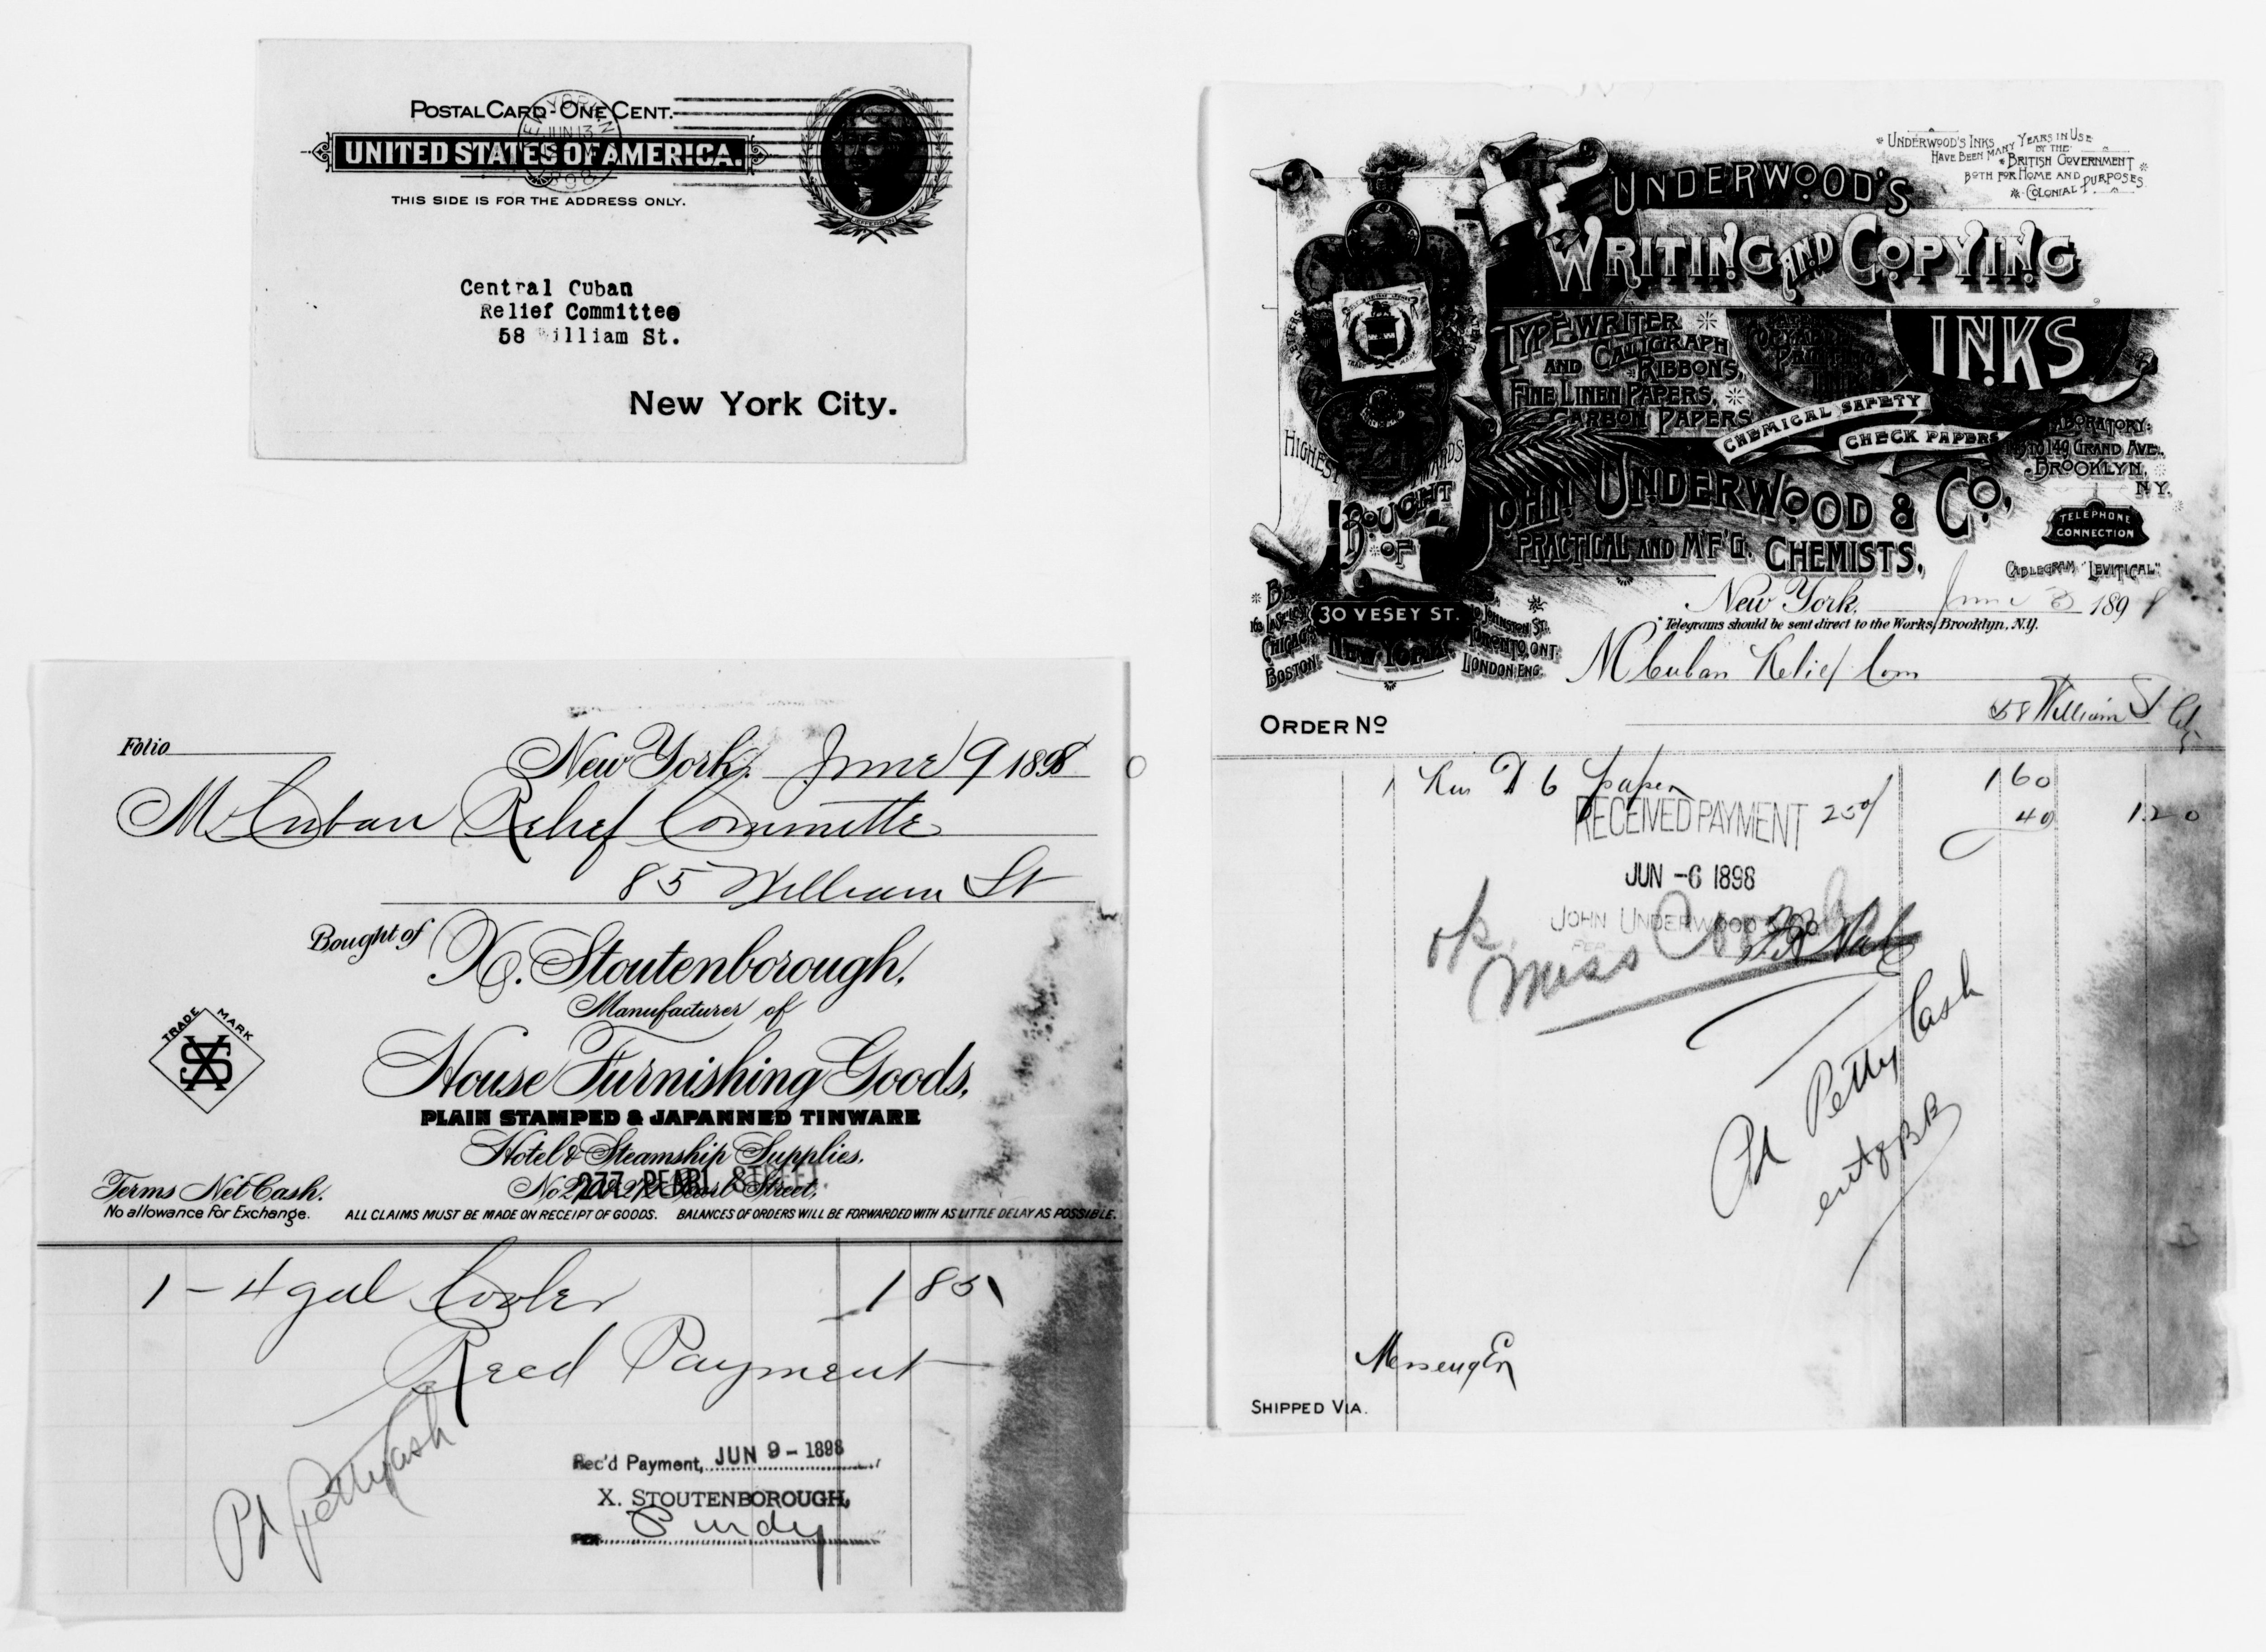 POSTAL CARD - ONE CENT.
UNITED STATES OF AMERICA.
THIS SIDE IS FOR THE ADDRESS ONLY.
JUN 13
JEFFERSON
Central Cuban
Relief Committee
58 William St.
New York City.
Folio
New York, June 9 1898
M Cuban Relief Committe
85 William St
Bought of X. Stoutenborough,
Manufacturer of
TRADE MARK
House Furnishing Goods,
PLAIN STAMPED & JAPANNED TINWARE
Hotel & Steamship Supplies.
277 PEARL STREET.
Pearl Street,
Terms Net Cash.
No allowance for Exchange. ALL CLAIMS MUST BE MADE ON RECEIPT OF GOODS. BALANCES OF ORDERS WILL BE FORWARDED WITH AS LITTLE DELAY AS POSSIBLE.
1 - 4 gal Cooler 1 85
Recd Payment
Pd Petty Cash
Rec'd Payment, JUN 9 - 1898
X. STOUTENBOROUGH,
PER Purdy
UNDERWOOD'S INKS
HAVE BEEN MANY YEARS IN USE
BY THE
BRITISH GOVERNMENT
BOTH FOR HOME AND
COLONIAL PURPOSES
UNDERWOOD'S
WRITING AND COPYING
INKS
TYPEWRITER
AND CALIGRAPH
RIBBONS,
FINE LINEN PAPERS,
CARBON PAPERS
CHEMICAL SAFETY
CHECK PAPERS
LABORATORY:
TO 149 GRAND AVE.
BROOKLYN,
N.Y.
HIGHEST AWARDS
BOUGHT
OF
JOHN UNDERWOOD & CO,
PRACTICAL AND M'F'G. CHEMISTS,
TELEPHONE
CONNECTION
CABLEGRAM "LEVITICAL"
30 VESEY ST.
NEW YORK
CHICAGO
BOSTON
JOHNSTON ST.
TORONTO, ONT.
LONDON ENG.
New York, June 3 1898
Telegrams should be sent direct to the Works, Brooklyn, N.Y.
M Cuban Relief Com
58 William St City
ORDER NO
1 Rm D 6 paper 1 60
25% 40 1.20
RECEIVED PAYMENT
JUN -6 1898
JOHN UNDERWOOD & CO
PER
ok.
Miss
Pd Petty Cash
Messenger
SHIPPED VIA.